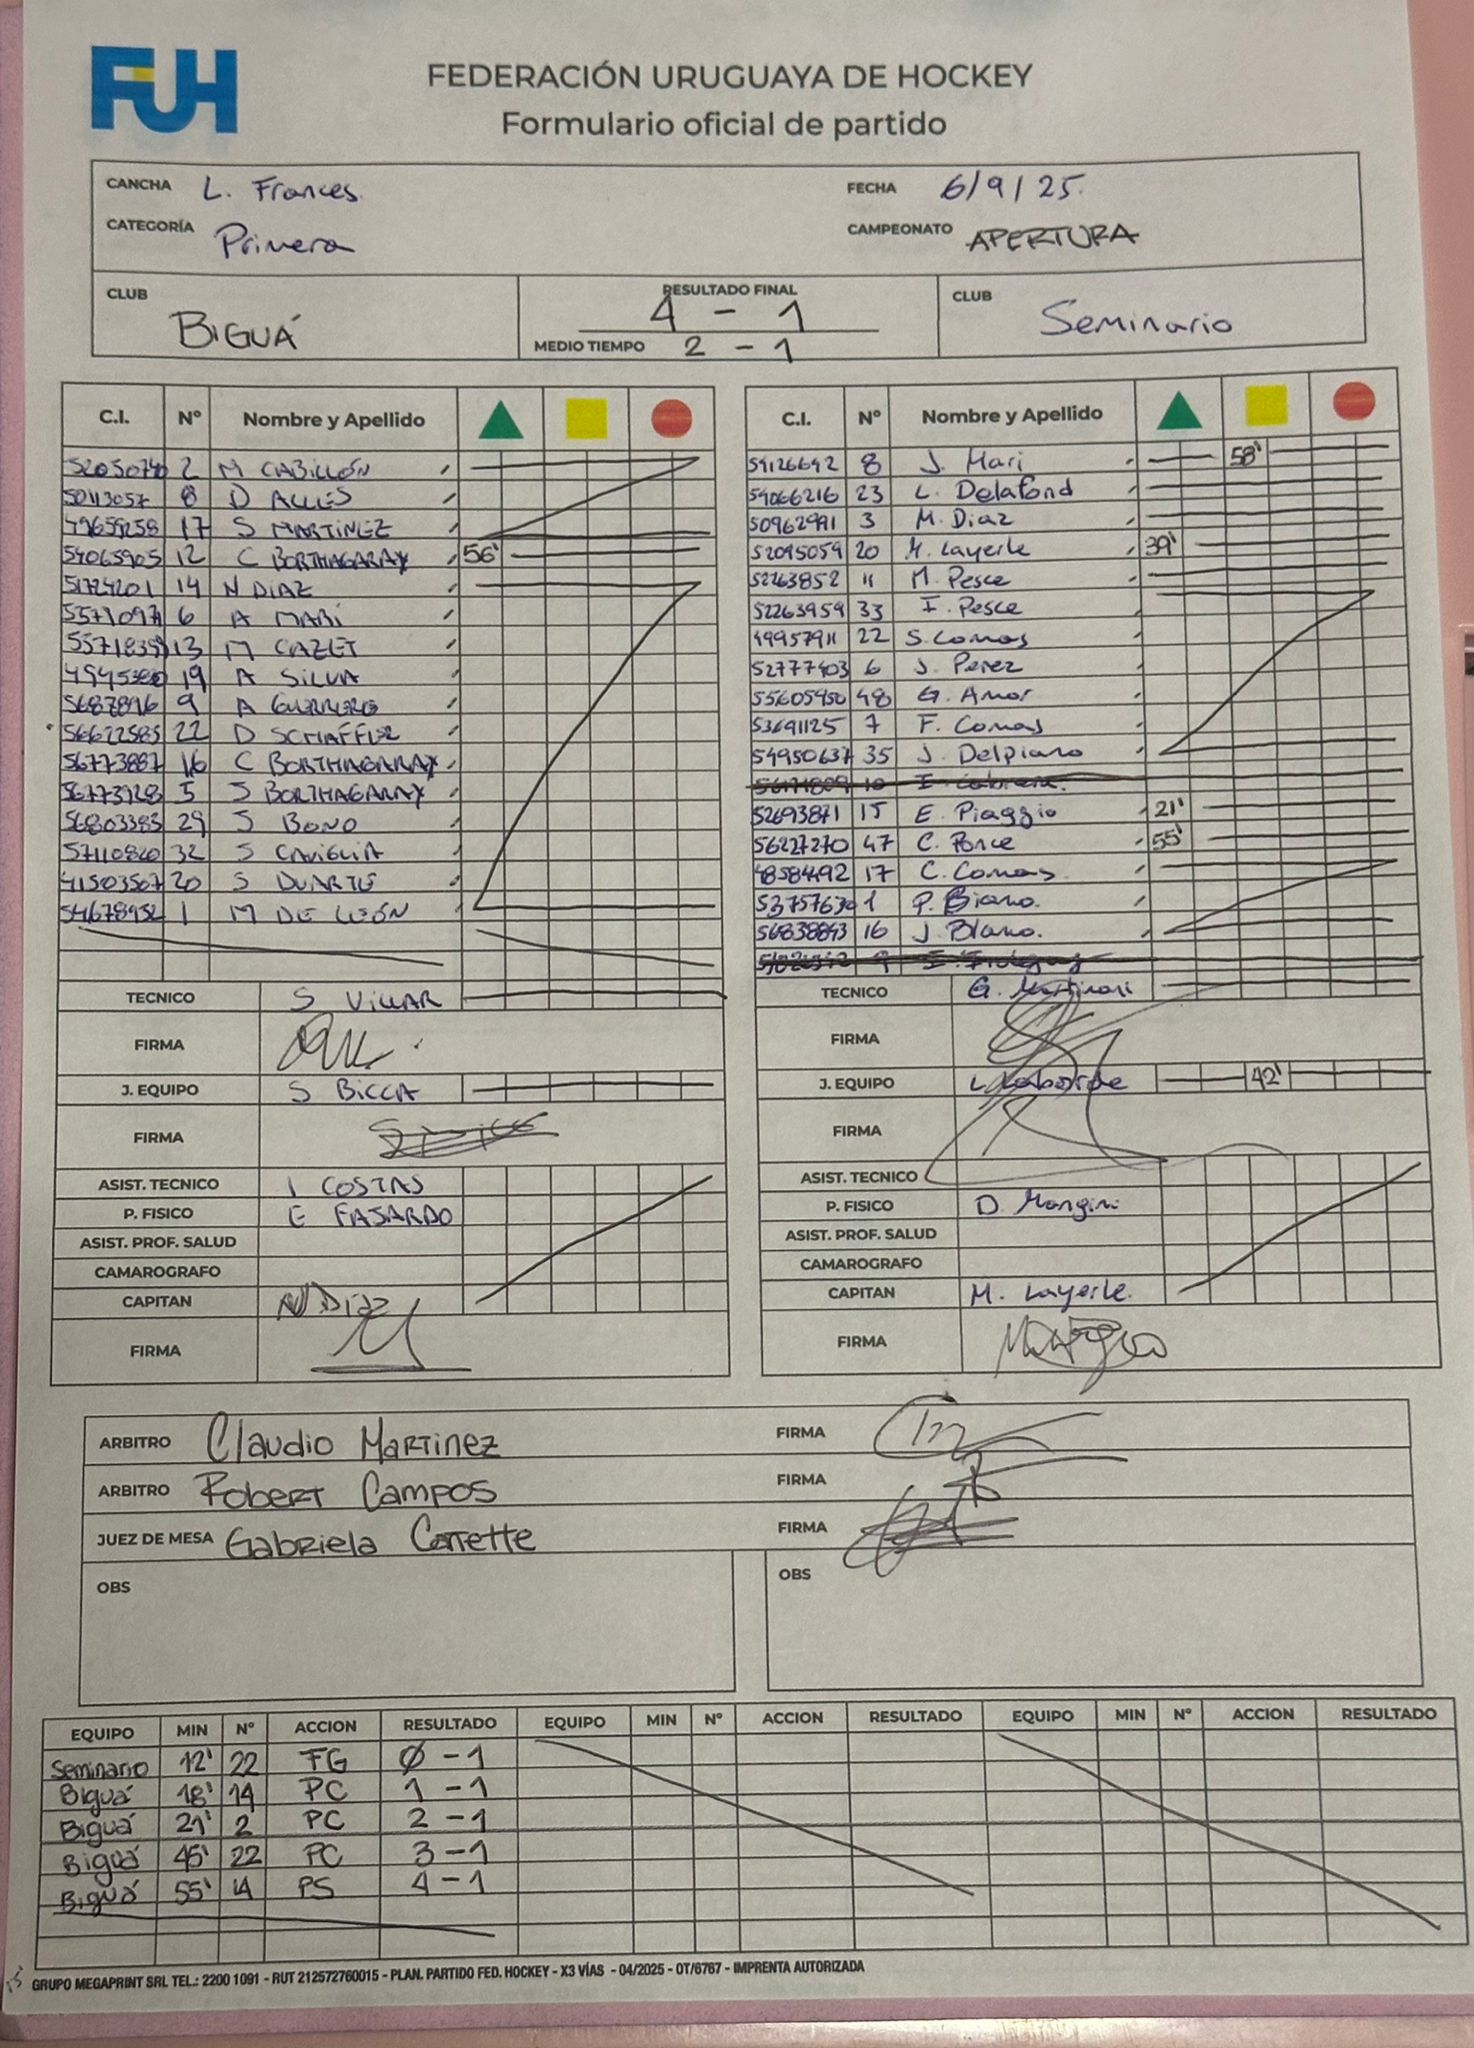 FUH
FEDERACIÓN URUGUAYA DE HOCKEY
Formulario oficial de partido
CANCHA L. Frances. FECHA 6/9/25.
CATEGORÍA Primera CAMPEONATO APERTURA
CLUB BIGUÁ
RESULTADO FINAL 4 - 1
MEDIO TIEMPO 2 - 1
CLUB Seminario
C.I. Nº Nombre y Apellido
2 M CABILLÓN
50113057 8 D ALLES
17 S MARTINEZ
54065905 12 C BORTHAGARAY 56'
51724201 14 N DIAZ
6 A MARI
13 M CAZET
19 A SILVA
9 A GUERRERO
56622585 22 D SCHAFFER
56773887 16 C BORTHAGARAY
56773928 5 S BORTHAGARAY
56803383 29 S BONO
57110820 32 S CAVIGLIA
41503507 20 S DUARTE
54678952 1 M DE LEÓN
TECNICO S VILLAR
FIRMA
J. EQUIPO S BICCA
FIRMA
ASIST. TECNICO I COSTAS
P. FISICO E FAJARDO
ASIST. PROF. SALUD
CAMAROGRAFO
CAPITAN N Diaz
FIRMA
C.I. Nº Nombre y Apellido
54126642 8 J. Mari 58'
54066216 23 L. Delafond
50962991 3 M. Diaz
52095059 20 M. Layerle 39'
52263852 11 M. Pesce
52263959 33 I. Pesce
49957911 22 S. Comas
52777403 6 J. Perez
55605950 48 G. Amor
53691125 7 F. Comas
54950637 35 J. Delpiano
10
52693871 15 E. Piaggio 21'
56227270 47 C. Ponce 55'
48584492 17 C. Comas
53757630 1 P. Biano.
56838893 16 J. Blano.
TECNICO G. Martinari
FIRMA
J. EQUIPO L. Laborde 42'
FIRMA
ASIST. TECNICO
P. FISICO D. Mangini
ASIST. PROF. SALUD
CAMAROGRAFO
CAPITAN M. Layerle.
FIRMA
ARBITRO Claudio Martinez FIRMA
ARBITRO Robert Campos FIRMA
JUEZ DE MESA Gabriela FIRMA
OBS OBS
EQUIPO MIN Nº ACCION RESULTADO EQUIPO MIN Nº ACCION RESULTADO EQUIPO MIN Nº ACCION RESULTADO
Seminario 12' 22 FG 0 - 1
Biguá 18' 14 PC 1 - 1
Biguá 21' 2 PC 2 - 1
Biguá 45' 22 PC 3 - 1
Biguá 55' 14 PS 4 - 1
GRUPO MEGAPRINT SRL TEL.: 2200 1091 - RUT 212572760015 - PLAN. PARTIDO FED. HOCKEY - X3 VÍAS - 04/2025 - OT/6767 - IMPRENTA AUTORIZADA